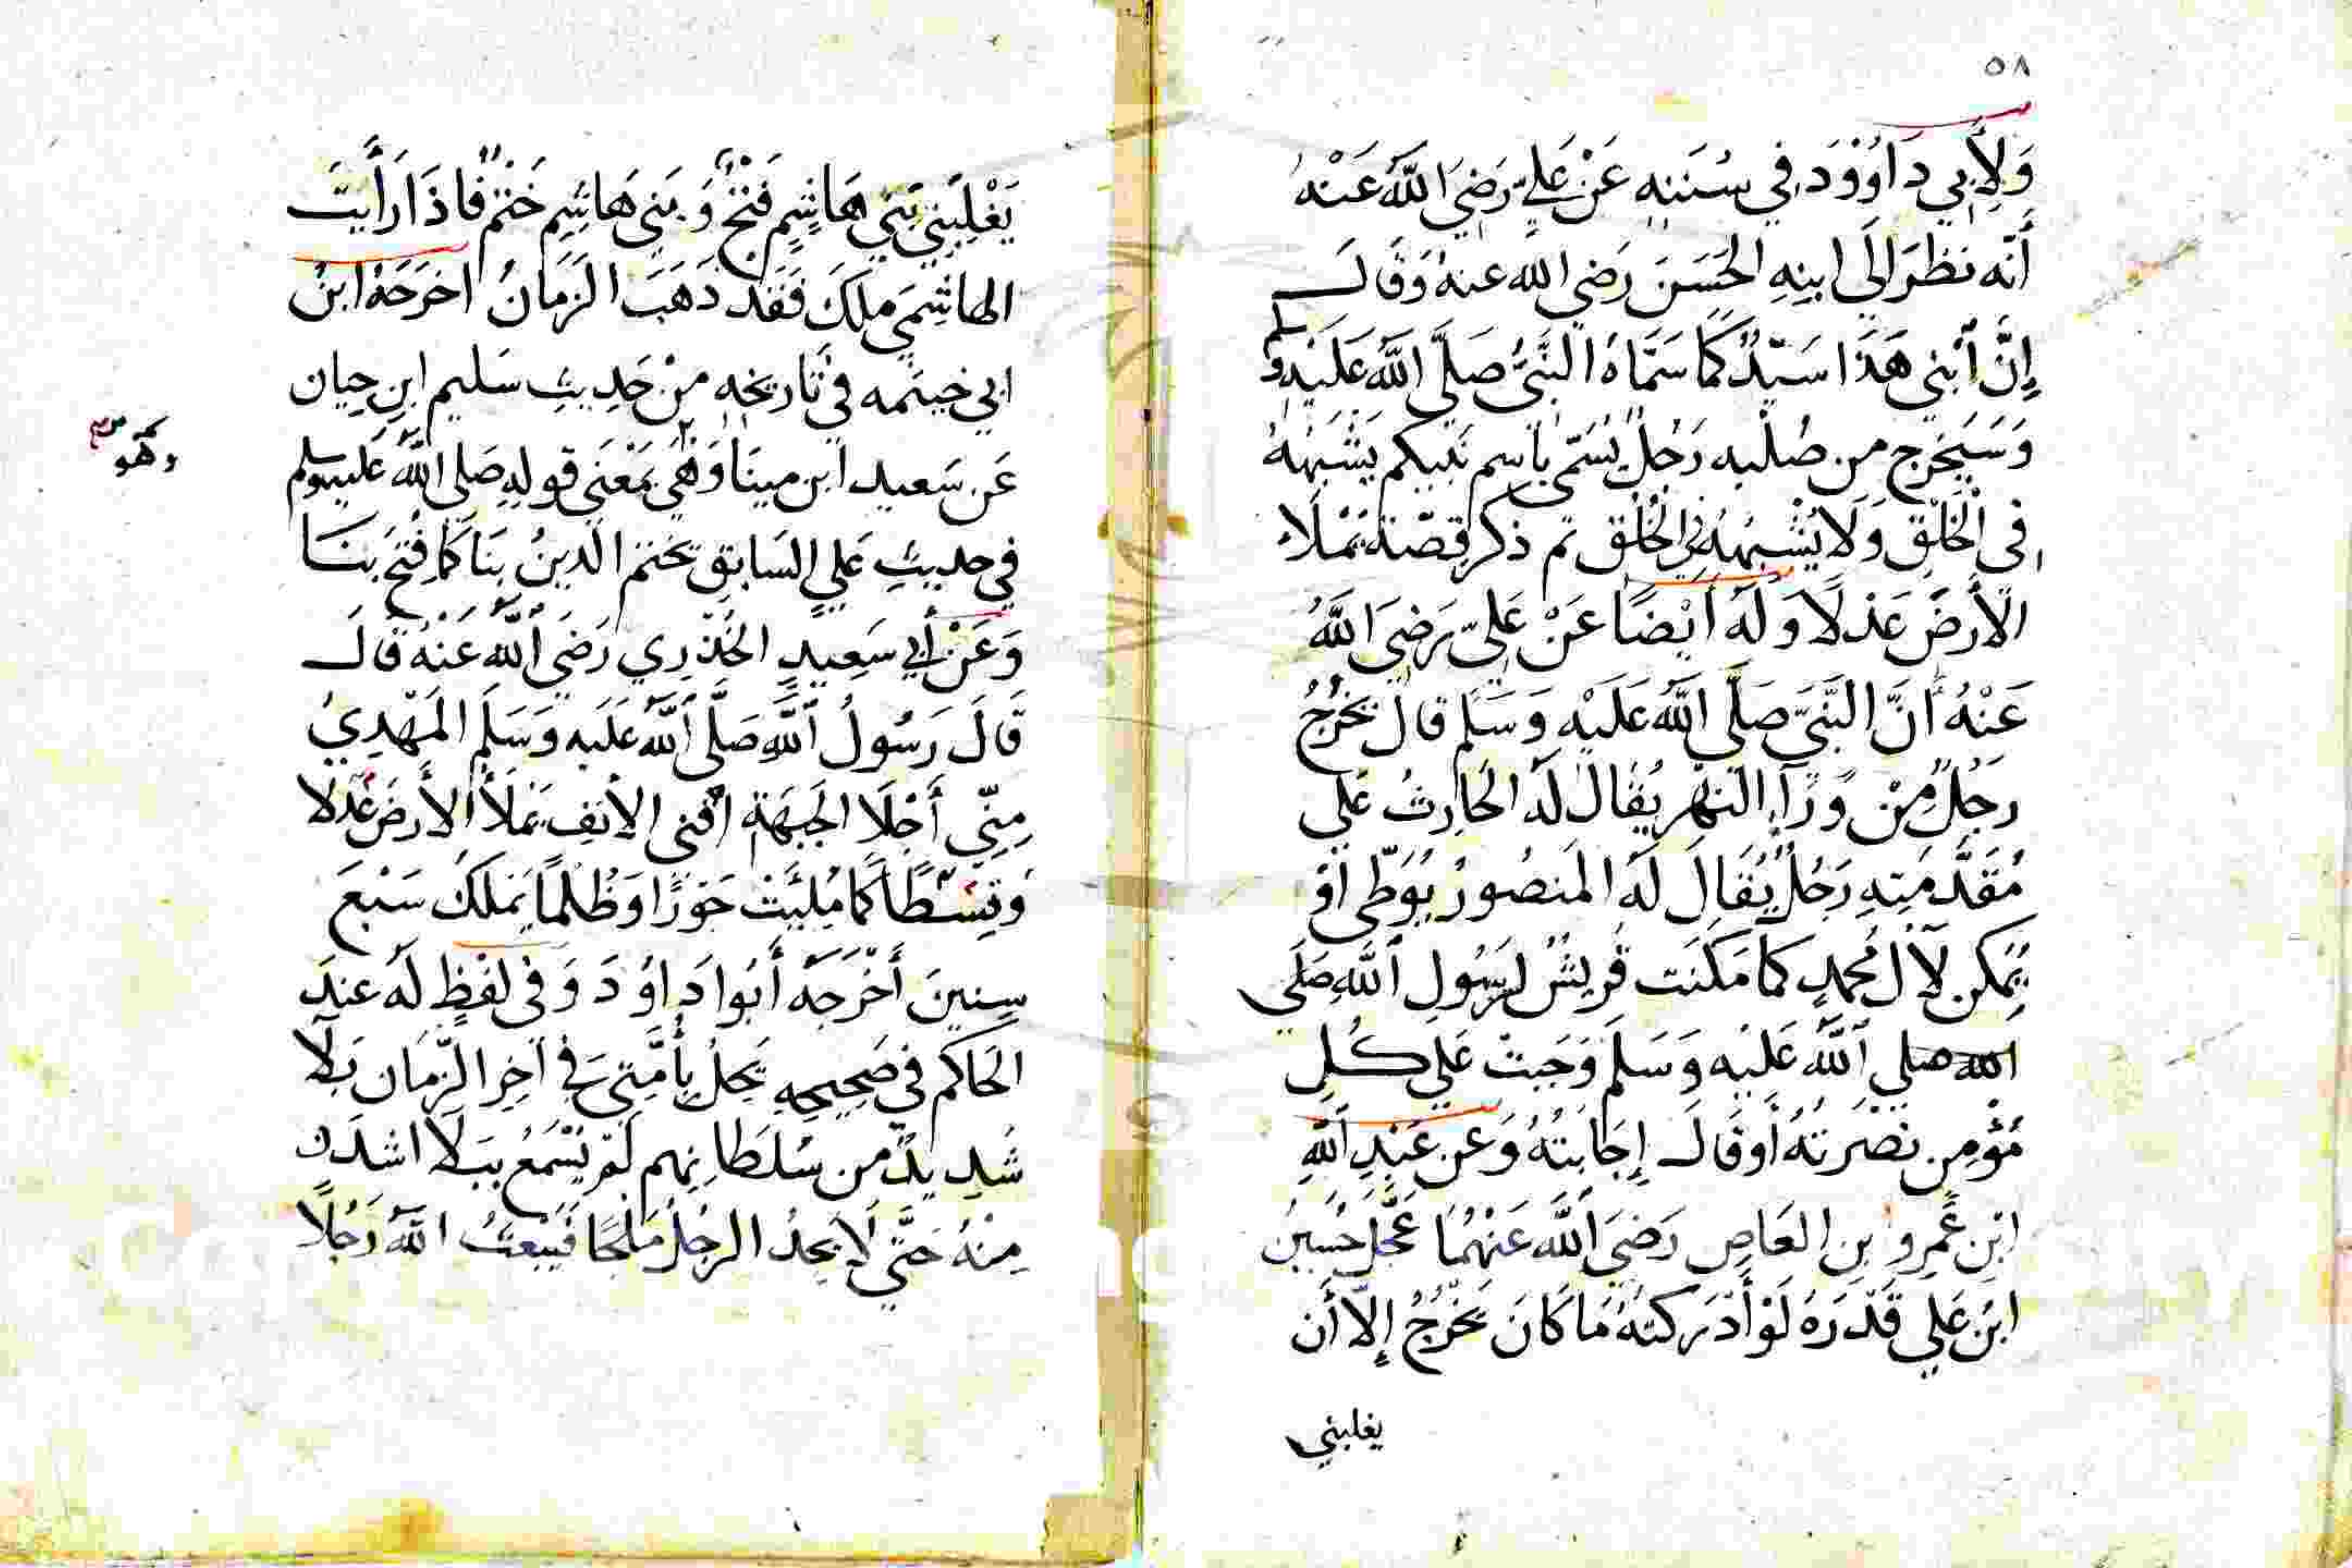 ٥٨
وَلِأَبِي دَاوُوْدَ فِي سُنَنِهِ عَنْ عَلِيٍّ رَضِيَ اللَّهُ عَنْهُ
أَنَّه نَظَرَ إلَى ابنِهِ الْحَسَنَ رَضِي اللّه عنهُ وَقَالَ
إِنَّ ٱبْنِي هَذَا سَيِّدٌ كَمَا سَمَّاهُ النَّبِيُّ صَلَّى اللَّهُ عَلَيْهِ وسلم
وَسَيَخرج من صُلْبِه رَجُلٌ يُسَمّى بِاسِم نَبِيكم يَشْبَهُهُ
فِي الْخَلْقِ وَلَا يُشْبِهُهُ فِي الْخُلُق ثم ذكر قِصّة يَمْلَاء
الأَرضَ عَدْلًا وَلَهُ أَيْضًا عَنْ عَلِيّ رَضِيَ اللَّهُ
عَنْهُ أَنَّ النَّبِيَّ صَلَّى اللَّهُ عَلَيْهِ وَسَلَّمَ قَالَ يَخْرُجُ
رَجُلٌ مِنْ وَرَآءِ النَّهْرِ يُقَالُ لَهُ الْحَارِثُ عَلَى
مُقَدَّمَتِهِ رَجُلٌ يُقَالَ لَهُ المَنصُورُ يُوَطِّى اَوْ
يُمكن لآل مُحمدٍ كمَا مَكَنَت قُرِيشٌ لِرَسُولِ ٱللَّهِ صَلَى
الله صلى ٱللَّهُ عَلَيْهِ وَسَلَّمَ وَجَبتْ عَلَى كُلِ
مُؤْمِنٍ نَصْرَتُهُ أَوقَالَ إِجَابَتُهُ وَعن عَبْدِ ٱللَّهِ
ابْنِ عَمرو بِنِ العَاصِ رَضِيَ ٱللَّهُ عَنْهُمَا عَجَّلَ حُسَينُ
ابْنُ عَلِي قَدَرَهُ لَوْ أَدْرَكتهُ مَا كَانَ يَخْرُجُ إِلاّ أَن
يغلبني
يَغْلِبَنِي بَنِي هَاشِمٍ فَتْحٌ وَبَنِي هَاشِمٍ خَتْمٌ فَاذَا رَأَيْتَ
الهاشِمَي ملكَ فَقَد ذَهَبَ الزَّمَانُ اخرَجَهُ ابنُ
ابي خيثمه في تَاريخهِ منْ حَدِيثِ سَليم ابنِ حيان
عَن سَعيد ابن مينَا وَهْيَ بمَعْنَى قولِهِ صَلى اللّهُ عَليه وسلم
وَهُو
في حديثِ عَلي السَابق يختم الدينُ بنَا كَمَا فُتحَ بنَا
وَعَنْ أَبِي سَعِيدٍ الخُدْرِي رَضَيَ ٱللَّهُ عَنْهُ قَالَ
قَالَ رَسُولُ ٱللَّهِ صَلَّى ٱللَّهُ عَلَيهِ وَسَلَمَ المَهْدِيُ
مِنِّي أَجْلَا الْجَبهَةِ اَقنى الأَنفِ يَمْلَأُ الأَرضَ عَدْلا
وَقِسْطًا كمَا مُلِيَتْ جَوْرًا وَظُلْمًا يَملكُ سَبْعَ
سِنينَ أَخْرَجَهُ أَبُوا دَاوُدَ وَفى لفْظٍ لَهُ عند
الحَاكم في صَحِيحِهِ يَحِلُ بِأُمَّتِي فِي آخِر الزَّمَان بَلآ
شَدِيدٌ من سُلطَانِهم لَمْ يُسْمَعُ ببَلَا اشَدَّ
مِنْهُ حَتَّى لَا يَجِدُ الرجُلُ مَلْجًا فَيَبْعَثُ اللَّهُ رَجُلًا